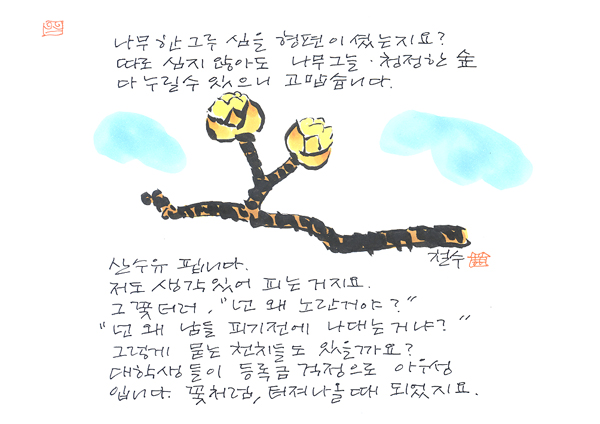 나무 한그루 심을 형편이 셨는지요?
따로 심지 않아도 나무그늘·청정한 숲
다 누릴수 있으니 고맙습니다.
철수
산수유 핍니다.
저도 생각있어 피는거지요.
그꽃더러, "넌 왜 노란거야?"
"넌 왜 남들 피기전에 나대는거냐?"
그렇게 묻는 천치들도 있을까요?
대학생들이 등록금 걱정으로 아우성
입니다. 꽃처럼, 터져나올때 되었지요.